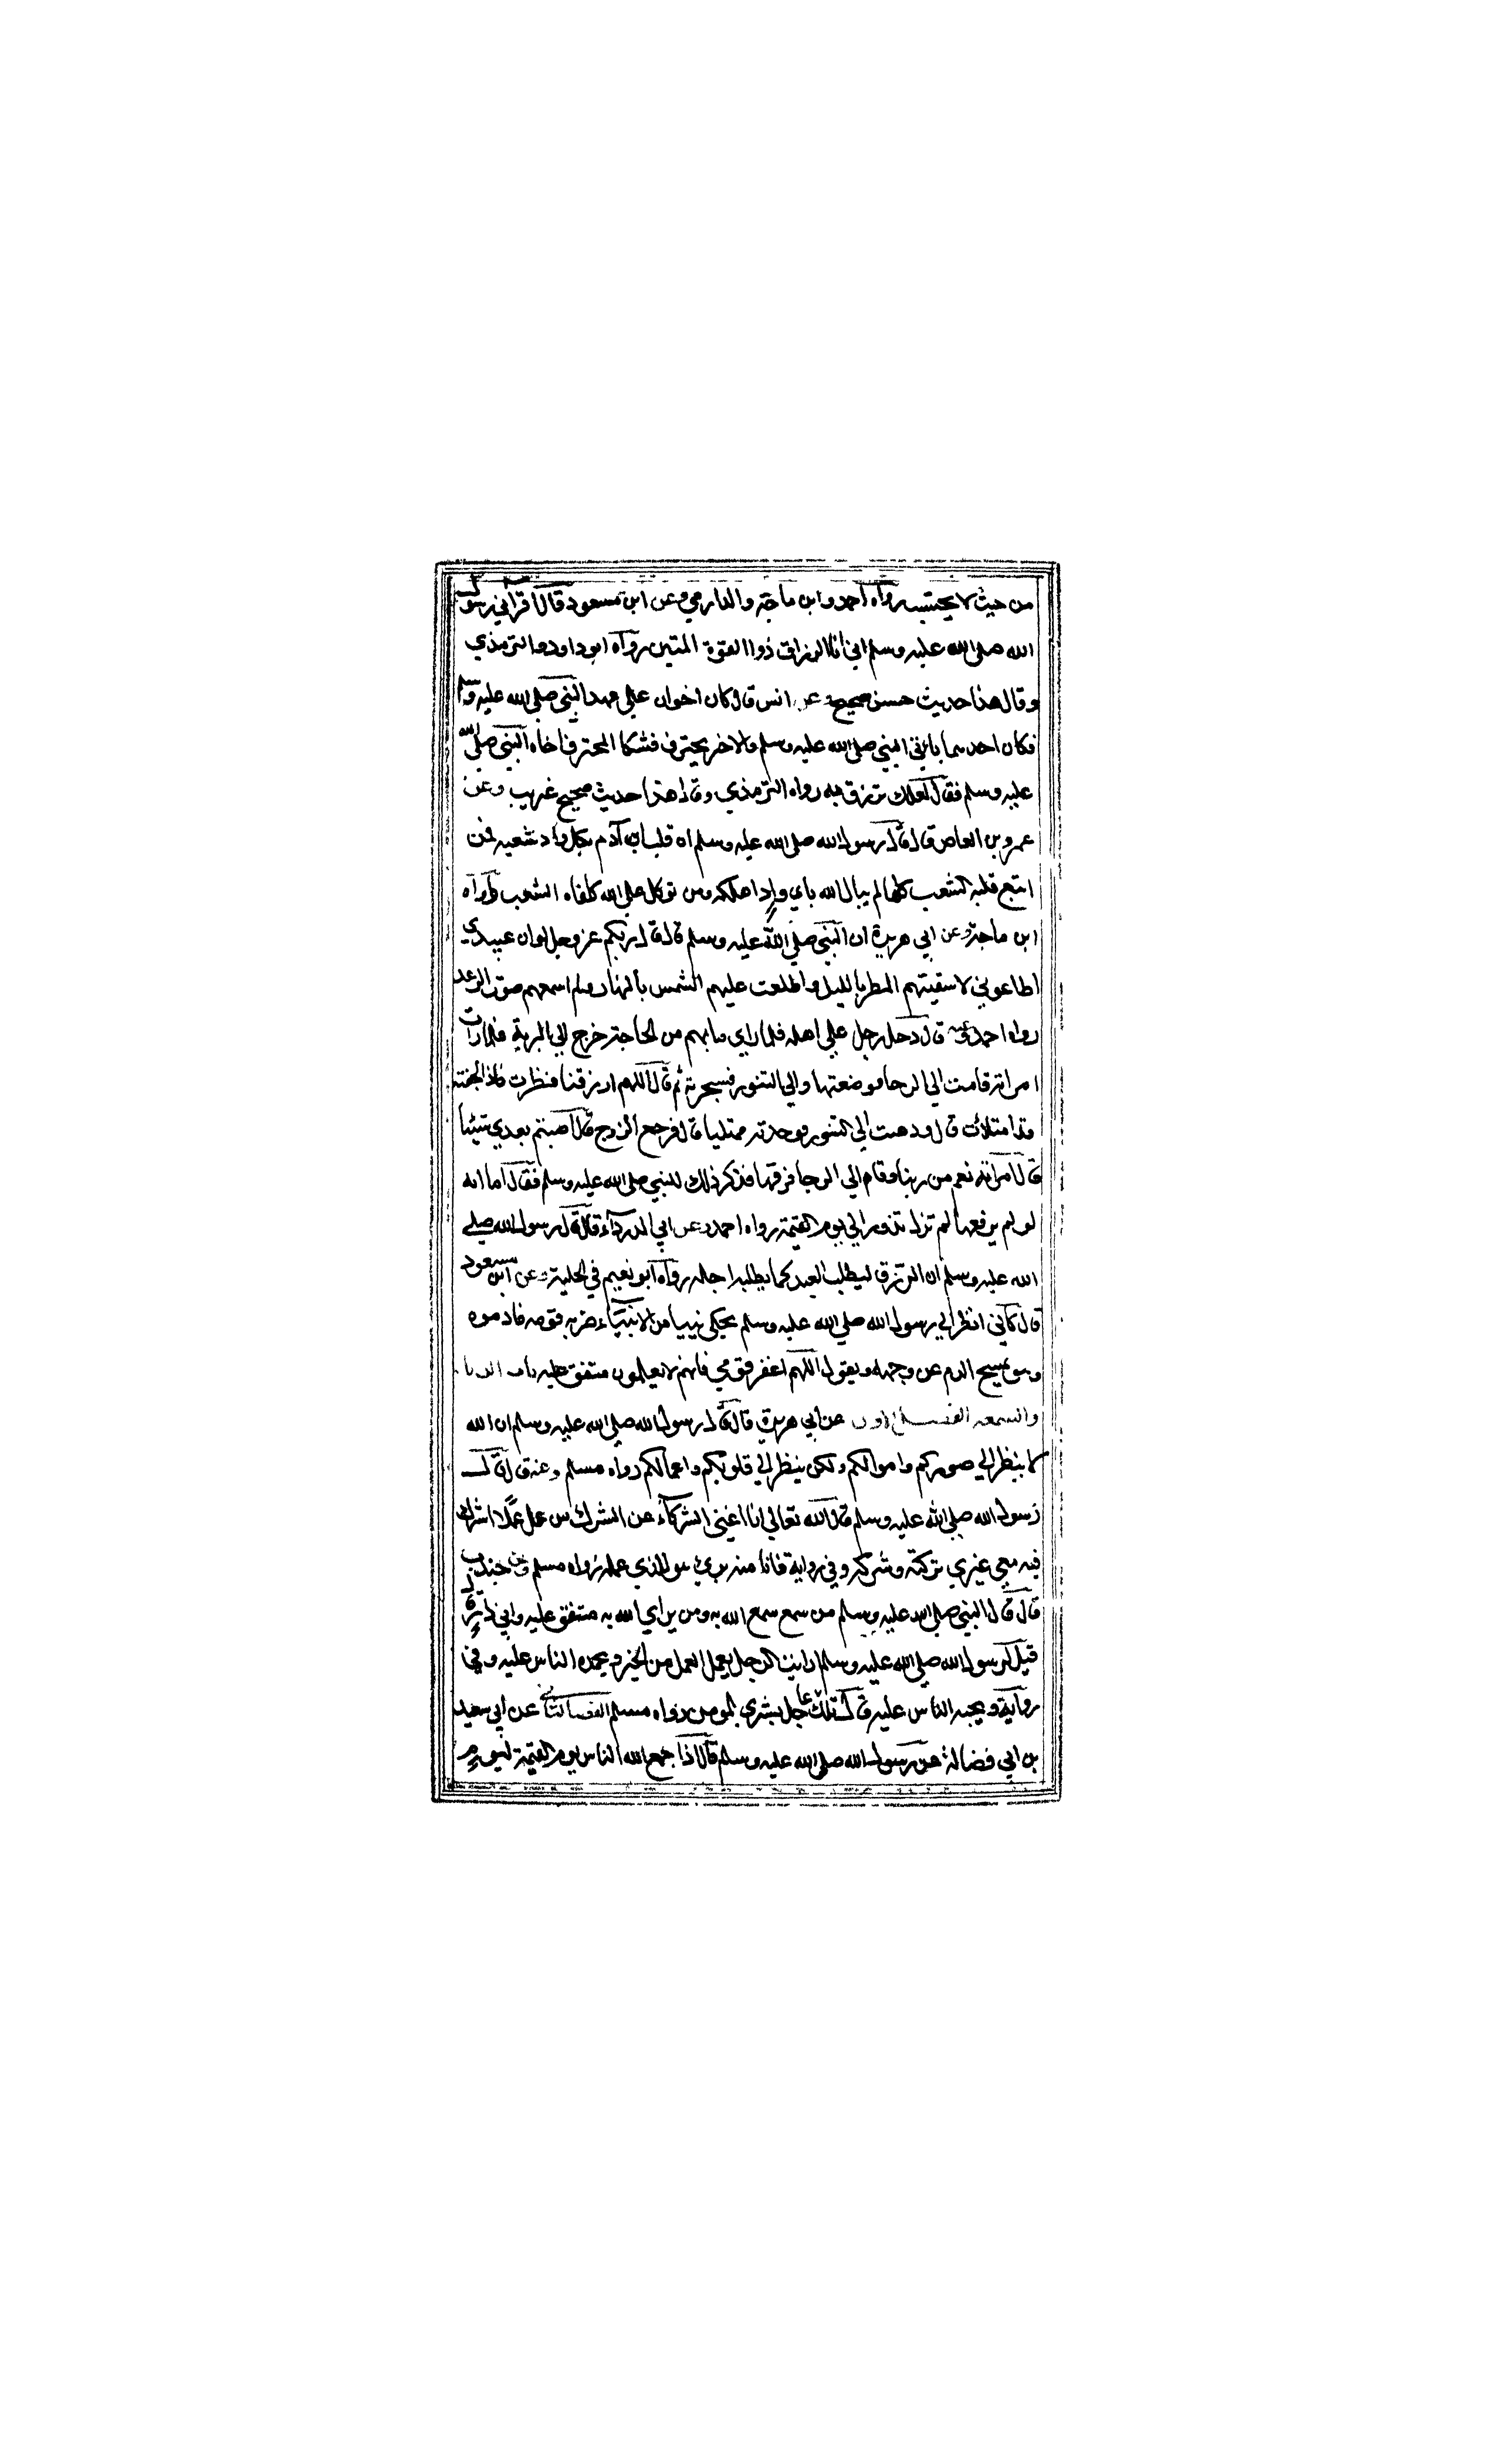 من حيث لا يحتسب رواه احمد وابن ماجة والدارمي وعن ابن مسعود قال اقراني رسول
الله صلى الله عليه وسلم اني انا الرزاق ذوا القوة المتين رواه ابو داود والترمذي
وقال هذا حديث حسن صحيح وعن انس قال كان اخوان علي عهد النبي صلى الله عليه وسلم
فكان احدهما ياتي النبي صلى الله عليه وسلم والاخر يحترف فشكا المحترف اخاه النبي صلى الله
عليه وسلم فقال لعلك ترزق به رواه الترمذي وقال هذا حديث صحيح غريب وعن
عمرو بن العاص قال قال رسول الله صلى الله عليه وسلم ان قلب ابن آدم بكل واد شعبة فمن
اتبع قلبه الشعب كلها لم يبال الله باي واد اهلكه ومن توكل على الله كفاه الشعب رواه
ابن ماجة وعن ابي هريرة ان النبي صلى الله عليه وسلم قال قال ربكم عز وجل لو ان عبيدي
اطاعوني لاسقيتهم المطر بالليل واطلعت عليهم الشمس بالنهار ولم اسمعهم صوت الرعد
رواه احمد وعنه قال دخل رجل علي اهله فلما راي ما بهم من الحاجة خرج الي البرية فلما رات
امراته قامت الي الرحا فوضعتها والي التنور فسجرته ثم قال اللهم ارزقنا فنظرت فاذا الجفنة
قد امتلات قال وذهبت الي التنور فوجدته ممتليا قال فرجع الزوج قال اصبتم بعدي شيئا
قال امراته نعم من ربنا وقام الي الرحا فرفعها فذكر ذلك للنبي صلى الله عليه وسلم فقال اما انه
لو لم يرفعها لم تزل تدور الي يوم القيمة رواه احمد وعن ابي الدرداء قال قال رسول الله صلى
الله عليه وسلم ان الرزق ليطلب العبد كما يطلبه اجله رواه ابو نعيم في الحلية وعن ابن مسعود
قال كاني انظر الي رسول الله صلى الله عليه وسلم يحكي نبيا من الانبياء ضربه قومه فادموه
وهو يمسح الدم عن وجهه ويقول اللهم اغفر قومي فانهم لا يعلمون متفق عليه باب الريا
والسمعه الفصل الاول عن ابي هريرة قال قال رسول الله صلى الله عليه وسلم ان الله
لا ينظر الي صوركم واموالكم ولكن ينظر الي قلوبكم واعمالكم رواه مسلم وعنه قال قال
رسول الله صلى الله عليه وسلم قال الله تعالي انا اغني الشركاء عن الشرك من عمل عملا اشرك
فيه معي غيري تركته وشركه وفي رواية فانا منه بريء هو للذي عمله رواه مسلم وعن جندب
قال قال النبي صلى الله عليه وسلم من سمع سمع الله به ومن يراي الله به متفق عليه وابي ذر قال
قيل لرسول الله صلى الله عليه وسلم ارايت الرجل يعمل العمل من الخير ويحمده الناس عليه وفي
رواية ويحبه الناس عليه قال تلك عاجل بشري المومن رواه مسلم الفصل الثاني عن ابي سعيد
بن ابي فضالة عن رسول الله صلى الله عليه وسلم قال اذا جمع الله الناس يوم القيمة ليوم